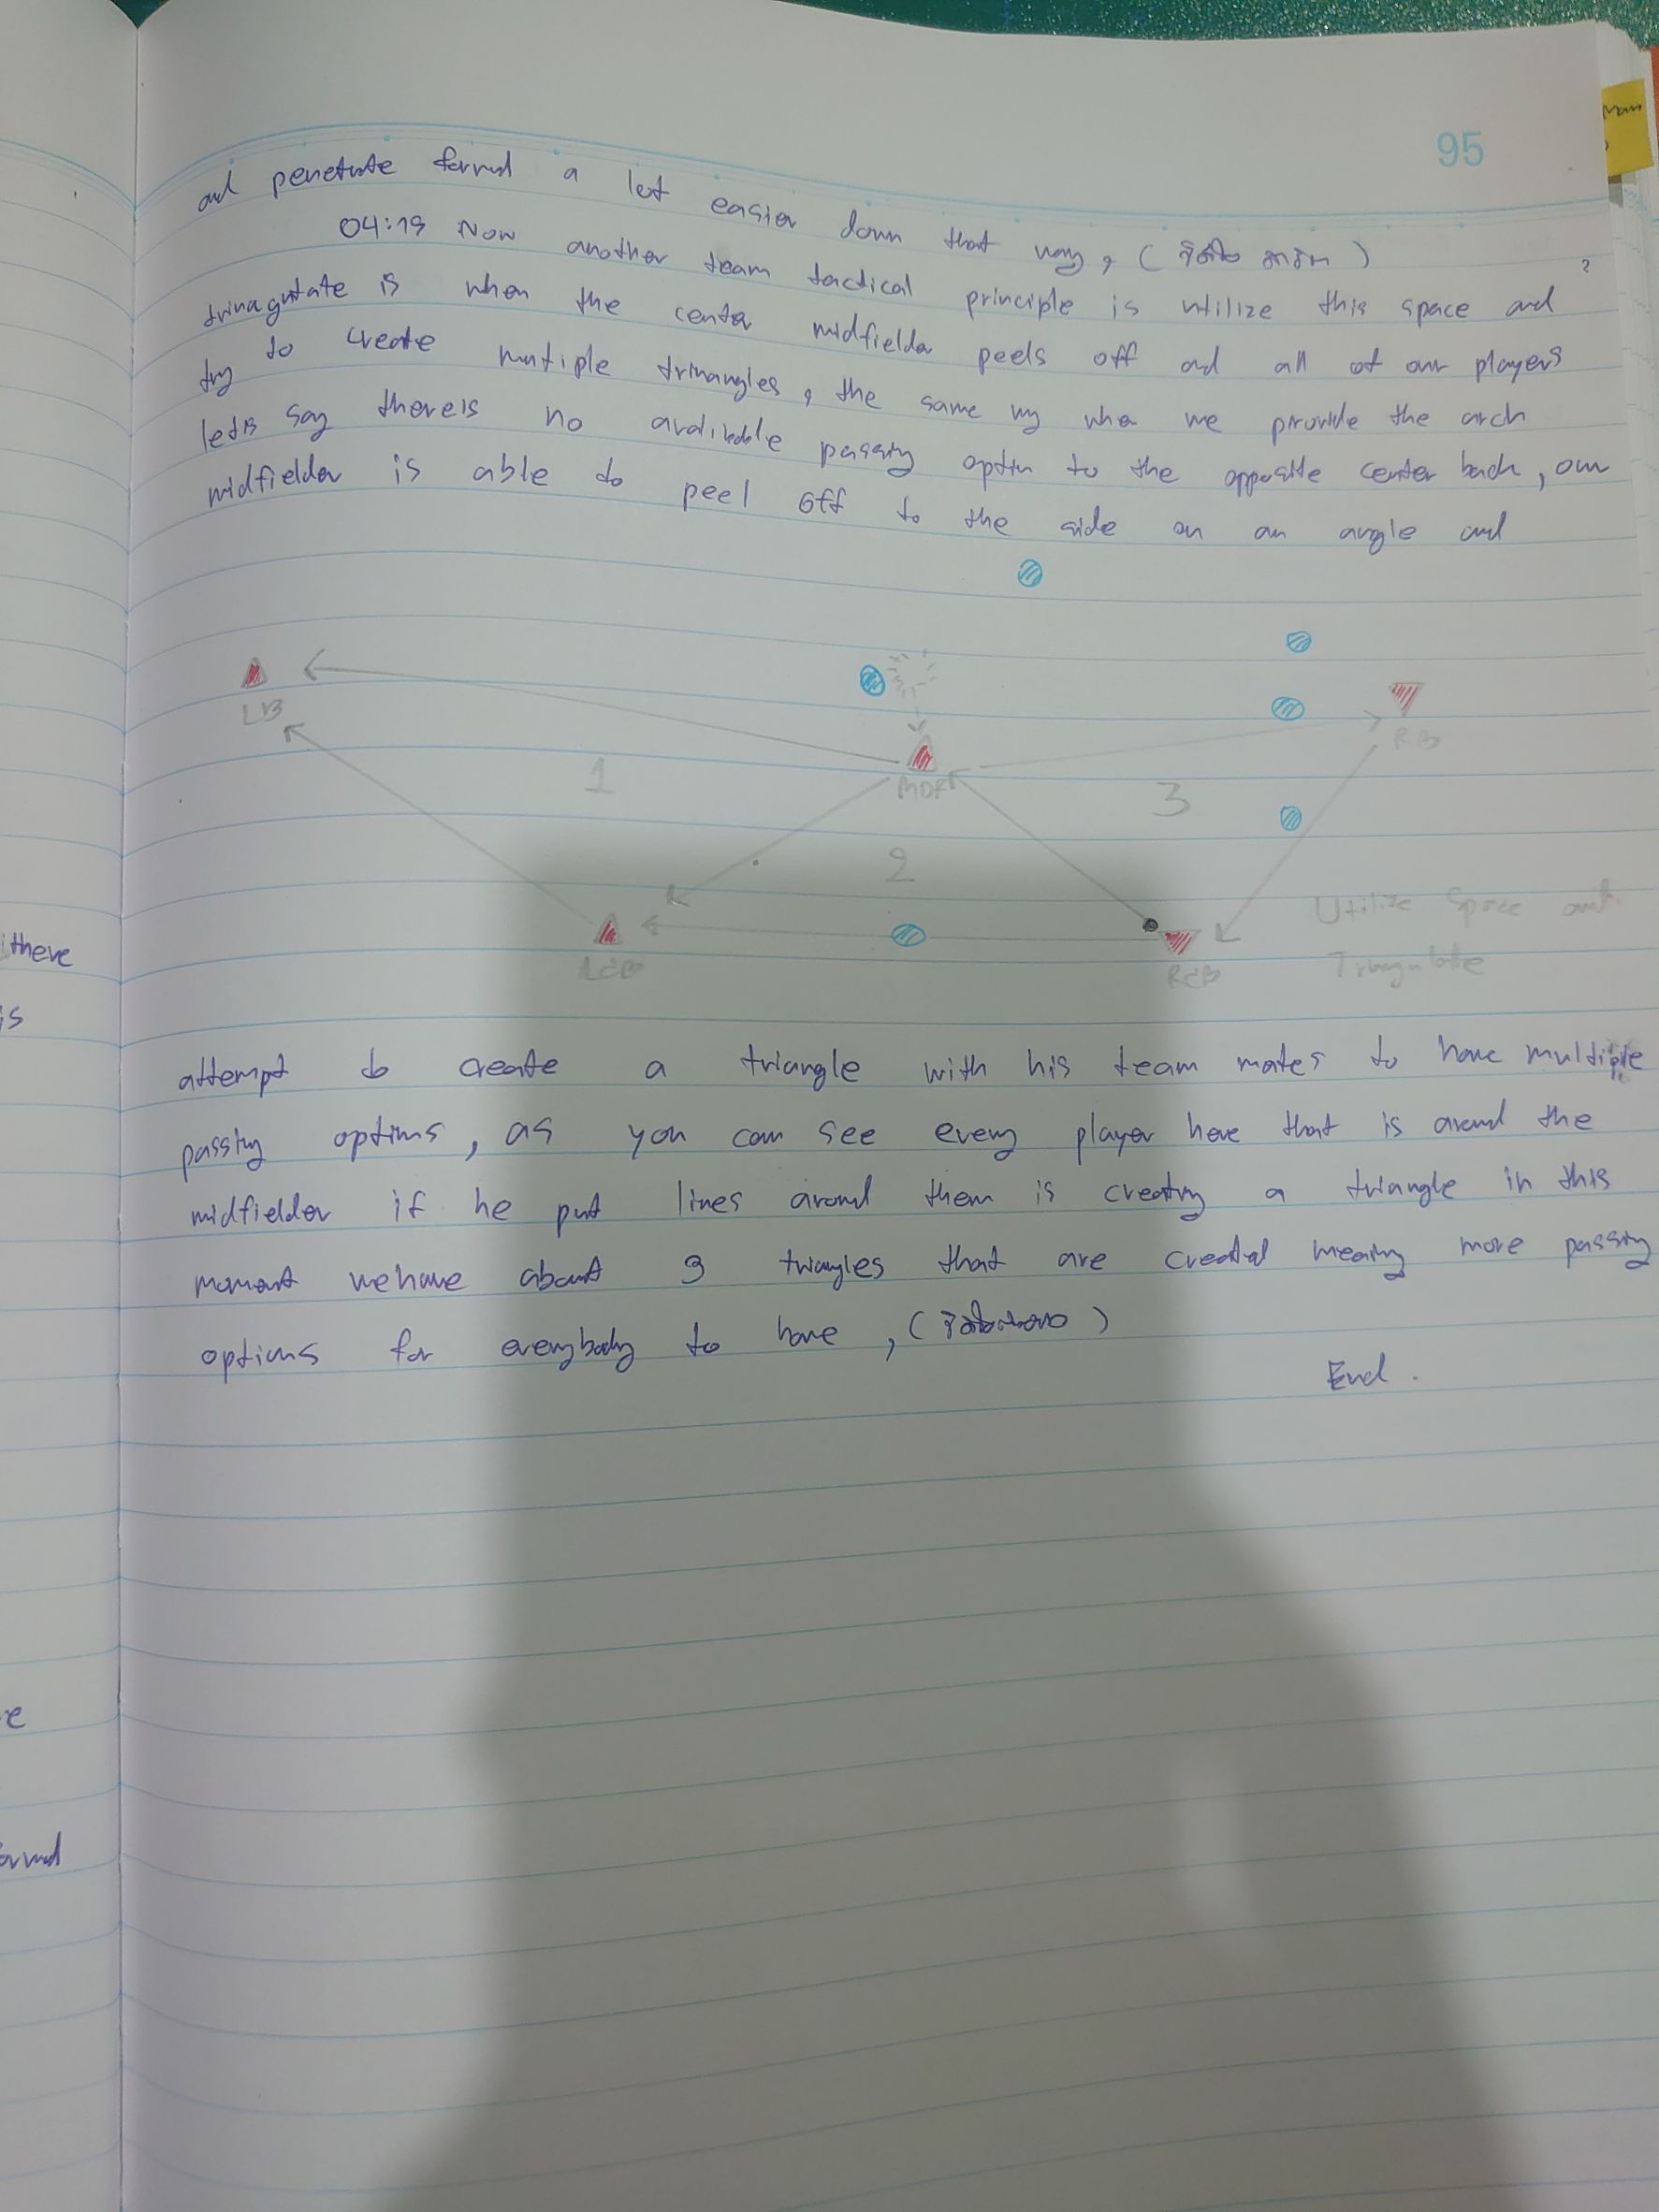 95
and penetrate forrud a lot easier down that way, (
04:19 Now another team tactical principle is utilize this space and
trinagutate is when the center midfielder peels off ad all of our players
try to create mutiple trinangles, the same wy when we provide the arch
let's say thereis no availbable passing option to the opposite center back, our
midfielder is able to peel off to the side on an angle and
LB
RB
MDF
1
3
2
LCB
RCB
Utilize Space and
Triangulate
attempt to create a triangle with his team mates to have multiple
passing options, as you can see every player here that is around the
midfielder if he put lines around them is creating a triangle in this
moment we have about 3 triangles that are created meaning more passing
options for everybody to have, (
End.
there
is